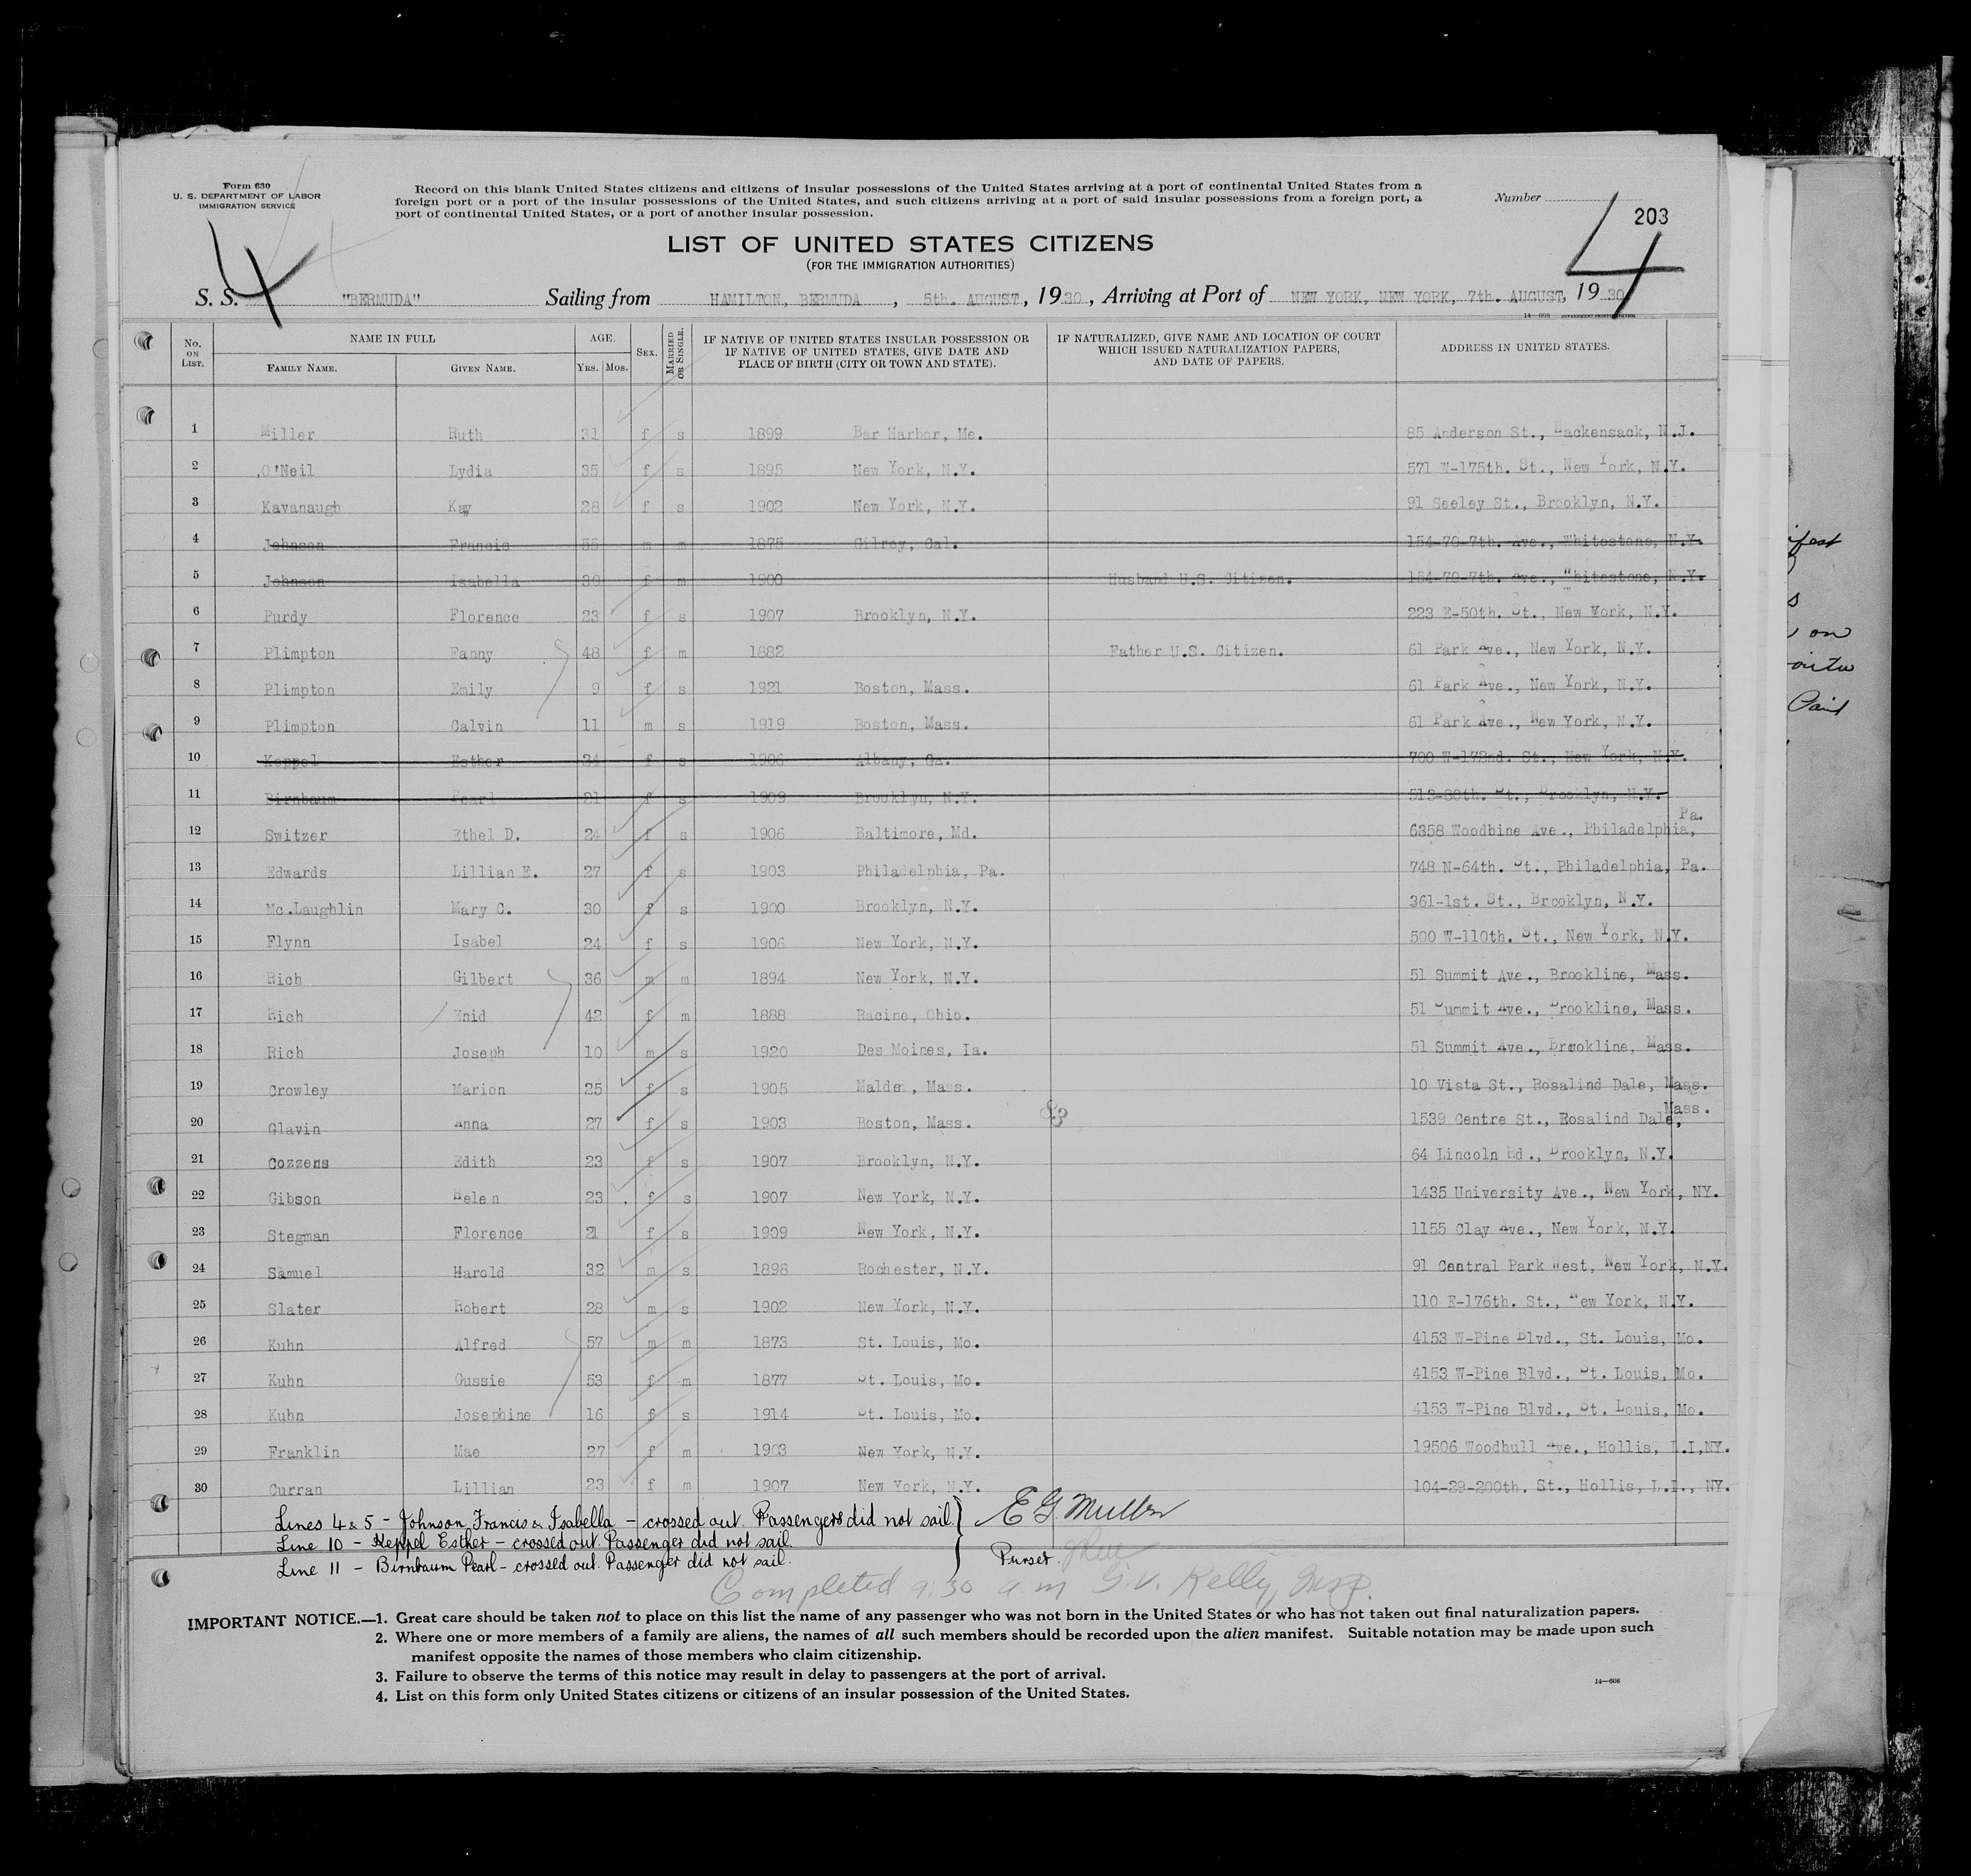 Form 630
U. S. DEPARTMENT OF LABOR
IMMIGRATION SERVICE
Record on this blank United States citizens and citizens of insular possessions of the United States arriving at a port of continental United States from a
foreign port or a port of the insular possessions of the United States, and such citizens arriving at a port of said insular possessions from a foreign port, a
port of continental United States, or a port of another insular possession.
Number
203
4
4
LIST OF UNITED STATES CITIZENS
(FOR THE IMMIGRATION AUTHORITIES)
S. S. "BERMUDA" Sailing from HAMILTON, BERMUDA, 5th. AUGUST, 1930, Arriving at Port of NEW YORK, NEW YORK, 7th. AUGUST, 1930
No. ON LIST. NAME IN FULL FAMILY NAME. GIVEN NAME. AGE. YRS. MOS. SEX. MARRIED OR SINGLE. IF NATIVE OF UNITED STATES INSULAR POSSESSION OR IF NATIVE OF UNITED STATES, GIVE DATE AND PLACE OF BIRTH (CITY OR TOWN AND STATE). IF NATURALIZED, GIVE NAME AND LOCATION OF COURT WHICH ISSUED NATURALIZATION PAPERS, AND DATE OF PAPERS. ADDRESS IN UNITED STATES.
1 Miller Ruth 31 f s 1899 Bar Harbor, Me. 85 Anderson St., Hackensack, N.J.
2 O'Neil Lydia 35 f s 1895 New York, N.Y. 571 W-175th. St., New York, N.Y.
3 Kavanaugh Kay 28 f s 1902 New York, N.Y. 91 Seeley St., Brooklyn, N.Y.
4 Johnson Francis 55 m m 1875 Gilroy, Cal. 154-70-7th. Ave., Whitestone, N.Y.
5 Johnson Isabella 30 f m 1900 Husband U.S. Citizen. 154-70-7th. Ave., Whitestone, N.Y.
6 Purdy Florence 23 f s 1907 Brooklyn, N.Y. 223 E-50th. St., New York, N.Y.
7 Plimpton Fanny 48 f m 1882 Father U.S. Citizen. 61 Park Ave., New York, N.Y.
8 Plimpton Emily 9 f s 1921 Boston, Mass. 61 Park Ave., New York, N.Y.
9 Plimpton Calvin 11 m s 1919 Boston, Mass. 61 Park Ave., New York, N.Y.
10 Keppel Esther 24 f s 1906 Albany, Ga. 700 W-172nd. St., New York, N.Y.
11 Birnbaum Pearl 21 f s 1909 Brooklyn, N.Y. 513-80th. St., Brooklyn, N.Y.
12 Switzer Ethel D. 24 f s 1906 Baltimore, Md. 6358 Woodbine Ave., Philadelphia, Pa.
13 Edwards Lillian E. 27 f s 1903 Philadelphia, Pa. 748 N-64th. St., Philadelphia, Pa.
14 Mc.Laughlin Mary C. 30 f s 1900 Brooklyn, N.Y. 361-1st. St., Brooklyn, N.Y.
15 Flynn Isabel 24 f s 1906 New York, N.Y. 500 W-110th. St., New York, N.Y.
16 Rich Gilbert 36 m m 1894 New York, N.Y. 51 Summit Ave., Brookline, Mass.
17 Rich Enid 42 f m 1888 Racine, Ohio. 51 Summit Ave., Brookline, Mass.
18 Rich Joseph 10 m s 1920 Des Moines, Ia. 51 Summit Ave., Brookline, Mass.
19 Crowley Marion 25 f s 1905 Malden, Mass. 10 Vista St., Rosalind Dale, Mass.
20 Glavin Anna 27 f s 1903 Boston, Mass. 1539 Centre St., Rosalind Dale, Mass.
21 Cozzens Edith 23 f s 1907 Brooklyn, N.Y. 64 Lincoln Rd., Brooklyn, N.Y.
22 Gibson Helen 23 f s 1907 New York, N.Y. 1435 University Ave., New York, NY.
23 Stegman Florence 21 f s 1909 New York, N.Y. 1155 Clay Ave., New York, N.Y.
24 Samuel Harold 32 m s 1898 Rochester, N.Y. 91 Central Park West, New York, N.Y.
25 Slater Robert 28 m s 1902 New York, N.Y. 110 E-176th. St., New York, N.Y.
26 Kuhn Alfred 57 m m 1873 St. Louis, Mo. 4153 W-Pine Blvd., St. Louis, Mo.
27 Kuhn Gussie 53 f m 1877 St. Louis, Mo. 4153 W-Pine Blvd., St. Louis, Mo.
28 Kuhn Josephine 16 f s 1914 St. Louis, Mo. 4153 W-Pine Blvd., St. Louis, Mo.
29 Franklin Mae 27 f m 1903 New York, N.Y. 19506 Woodhull Ave., Hollis, L.I,NY.
30 Curran Lillian 23 f m 1907 New York, N.Y. 104-29-200th. St., Hollis, L.I., NY.
Lines 4 & 5 - Johnson Francis & Isabella - crossed out. Passengers did not sail.
Line 10 - Keppel Esther - crossed out. Passenger did not sail.
Line 11 - Birnbaum Pearl - crossed out. Passenger did not sail.
E G Mullen
Purser.
Completed 9:30 a m G.V. Kelly, Insp.
IMPORTANT NOTICE.—1. Great care should be taken not to place on this list the name of any passenger who was not born in the United States or who has not taken out final naturalization papers.
2. Where one or more members of a family are aliens, the names of all such members should be recorded upon the alien manifest. Suitable notation may be made upon such
manifest opposite the names of those members who claim citizenship.
3. Failure to observe the terms of this notice may result in delay to passengers at the port of arrival.
4. List on this form only United States citizens or citizens of an insular possession of the United States.
14—608